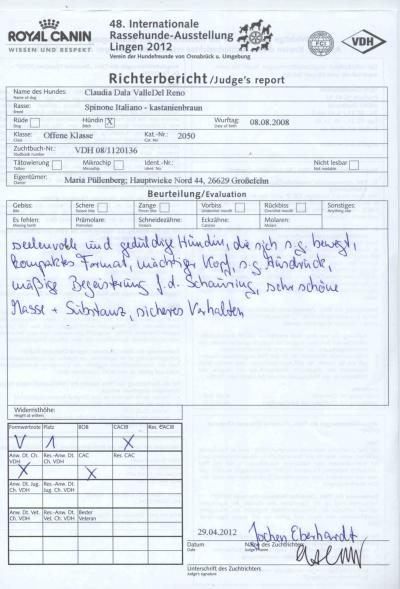 ROYAL CANIN
WISSEN UND RESPEKT
48. Internationale
Rassehunde-Ausstellung
Lingen 2012
Verein der Hundefreunde von Osnabrück u. Umgebung
FCI
VDH
Richterbericht/Judge's report
Name des Hundes: Claudia Dala ValleDel Reno
Name of dog
Rasse: Spinone Italiano - kastanienbraun
Breed
Rüde Hündin X Wurftag: 08.08.2008
Dog Bitch Date of birth
Klasse: Offene Klasse Kat.-Nr.: 2050
Class Cat. No
Zuchtbuch-Nr.: VDH 08/1120136
Studbook number
Tätowierung Mikrochip Ident.-Nr.: Nicht lesbar
Tattoo Microchip Ident. No: Not readable
Eigentümer: Maria Püllenberg; Hauptwieke Nord 44, 26629 Großefehn
Owner
Beurteilung/Evaluation
Gebiss: Schere Zange Vorbiss Rückbiss Sonstiges:
Bite Scissor bite Pincer bite Undershot mouth Overshot mouth Anything else
Es fehlen: Prämolare: Schneidezähne: Eckzähne: Molaren:
Missing teeth Premolars Incisors Canines Molars
seelenvolle und geduldige Hündin, die sich s.g. bewegt,
kompaktes Format, mächtiger Kopf, s.g. Ausdruck,
mäßige Begeisterung f.d. Schauring, sehr schöne
Masse + Substanz, sicheres Verhalten
Widerristhöhe:
Height at withers
Formwertnote Platz BOB CACIB Res. CACIB
V 1 X
Anw. Dt. Ch. VDH Res.-Anw. Dt. Ch. VDH CAC Res. CAC
X X
Anw. Dt. Jug. Ch. VDH Res.-Anw. Dt. Jug. Ch. VDH
Anw. Dt. Vet. Ch. VDH Res.-Anw. Dt. Vet. Ch. VDH Bester Veteran
29.04.2012 Jochen Eberhardt
Datum Name des Zuchtrichters
Date Judge's name
Unterschrift des Zuchtrichters
Judge's signature